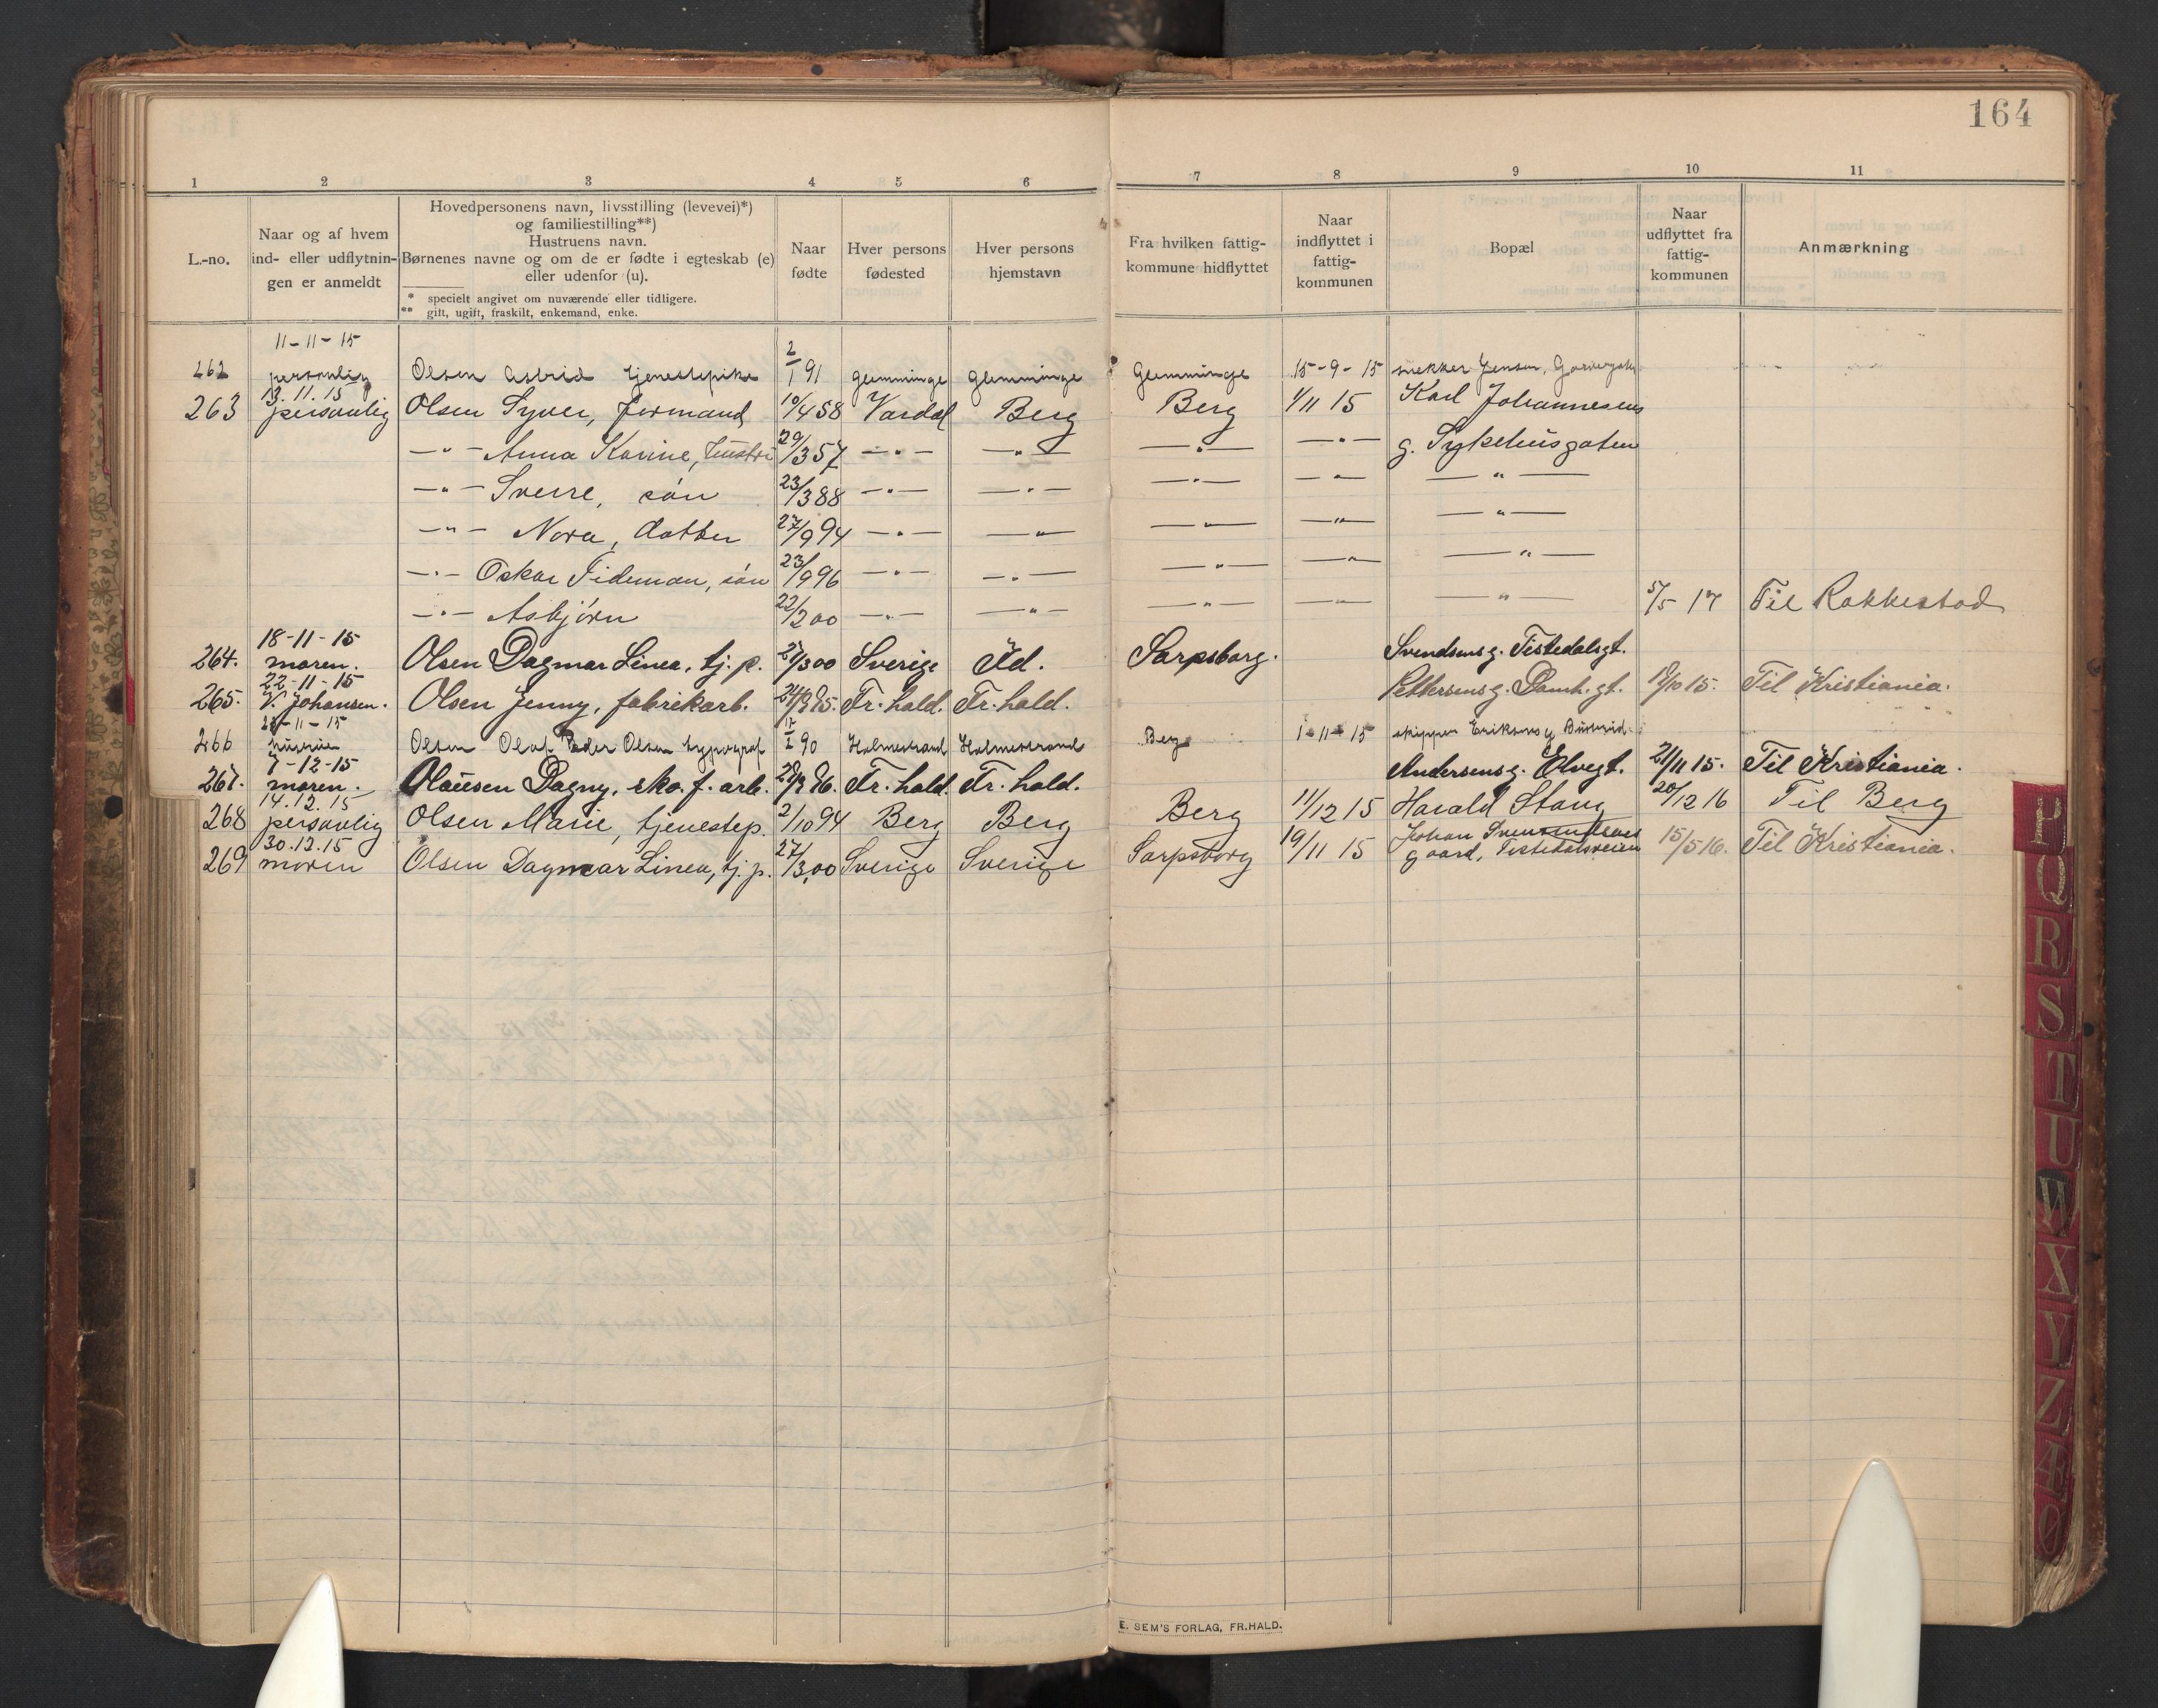 164
1 2 3 4 5 6 7 8 9 10 11
L.-no.
Naar og af hvem
ind- eller udflytnin-
gen er anmeldt
Hovedpersonens navn, livsstilling (levevei)*)
og familiestilling**)
Hustruens navn.
Børnenes navne og om de er fødte i egteskab (e)
eller udenfor (u).
* specielt angivet om nuværende eller tidligere.
** gift, ugift, fraskilt, enkemand, enke.
Naar
fødte
Hver persons
fødested
Hver persons
hjemstavn
Fra hvilken fattig-
kommune hidflyttet
Naar
indflyttet i
fattig-
kommunen
Bopæl
Naar
udflyttet fra
fattig-
kommunen
Anmærkning
11-11-15
262 personlig Olsen Astrid tjenestepike 2/1 91 Glemminge Glemminge Glemminge 15-9-15 snekker Jensen,
13.11.15
263 personlig Olsen Syver, formand 10/4 58 Vardal Berg Berg 1/11 15 Karl Johannesens
-"- Anna Karine, hustru 29/3 57 -"- -"- -"- -"- g. Sykehusgaten
-"- Sverre, søn 23/3 88 -"- -"- -"- -"- -"-
-"- Nora, datter 27/9 94 -"- -"- -"- -"- -"-
-"- Oskar Fideman, søn 23/9 96 -"- -"- -"- -"- -"-
-"- Asbjørn 22/2 00 -"- -"- -"- -"- -"- 5/5 17 Til Rakkestad
18-11-15
264. moren. Olsen Dagmar Linea, tj. p. 27/3 00 Sverige Id. Sarpsborg. Svendsens g. Tistedalsgt.
22-11-15
265. V. Johansen. Olsen Jenny, fabrikarb. 24/9 95. Fr.hald. Fr.hald. Pettersens g. Damh.gt. 15. Til Kristiania.
11-15
266 husruen Olsen Olaf Peder Olsen typograf 90 Holmestrand Holmestrand Berg 1-11-15 skipper Eriksens g
7-12-15
267. moren. Olausen Dagny, sko.f.arb. 96. Fr.hald. Fr.hald. Andersens g. Elvegt. 21/11 15. Til Kristiania.
14.12.15
268 personlig Olsen Marie, tjenestep. 2/10 94 Berg Berg Berg 11/12 15 Harald Stang 20/12 16 Til Berg
30.12.15
269 moren Olsen Dagmar Linea, tj. p. 27/3 00 Sverige Sverige Sarpsborg 19/11 15 Johan Svensendsens 15/5 16. Til Kristiania.
gaard, Tistedalsveien
E. SEM'S FORLAG, FR.HALD.
P
Q
R
S
T
U
W
X
Y
Z
Æ
Ø